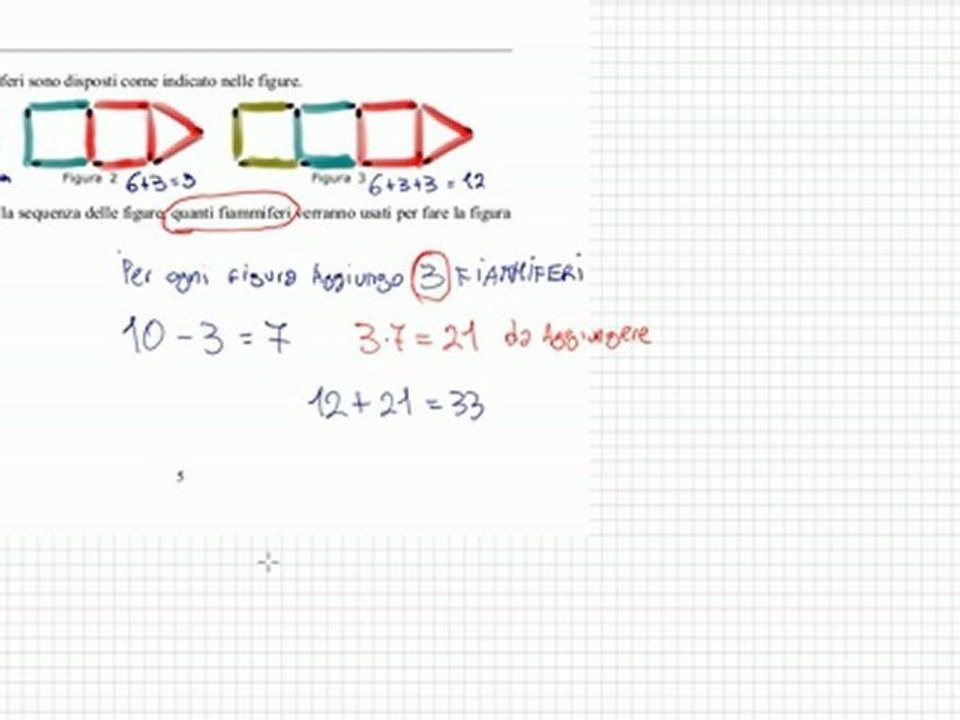 feri sono disposti come indicato nelle figure.
Figura 2 6+3=9 Figura 3 6+3+3 = 12
la sequenza delle figure, quanti fiammiferi verranno usati per fare la figura
Per ogni figura Aggiungo 3 FIAMMIFERI
10 - 3 = 7 3·7 = 21 da Aggiungere
12 + 21 = 33
5